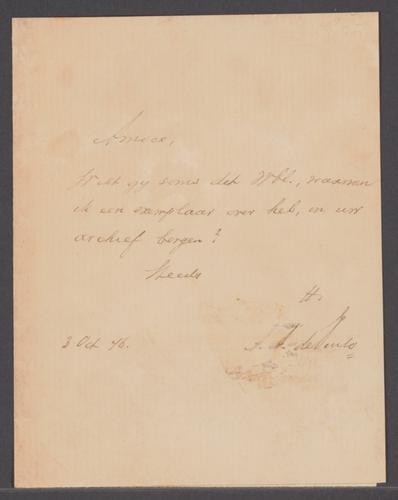 Amice,
Wilt gy soms dit Wbl., waarvan
ik een exemplaar over heb, in uw
archief bergen?
Steeds
H.
3 Oct 76.
A. de Pinto